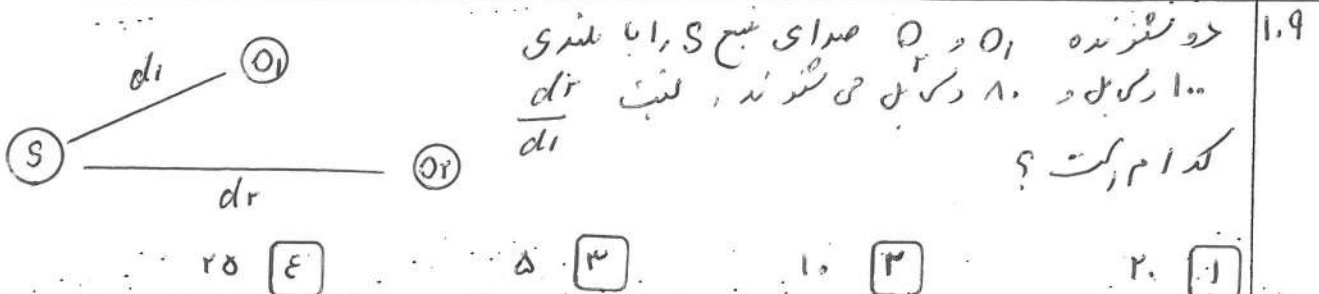 ۱۰۹
دو شنونده O₁ و O₂ صدای منبع S را با بلندی
۱۰۰ دسی بل و ۸۰ دسی بل می شنوند، نسبت d۲/d۱
کدام است ؟
S
d۱
O۱
d۲
O۲
۱ ۲۰
۲ ۱۰
۳ ۵
۴ ۲۵